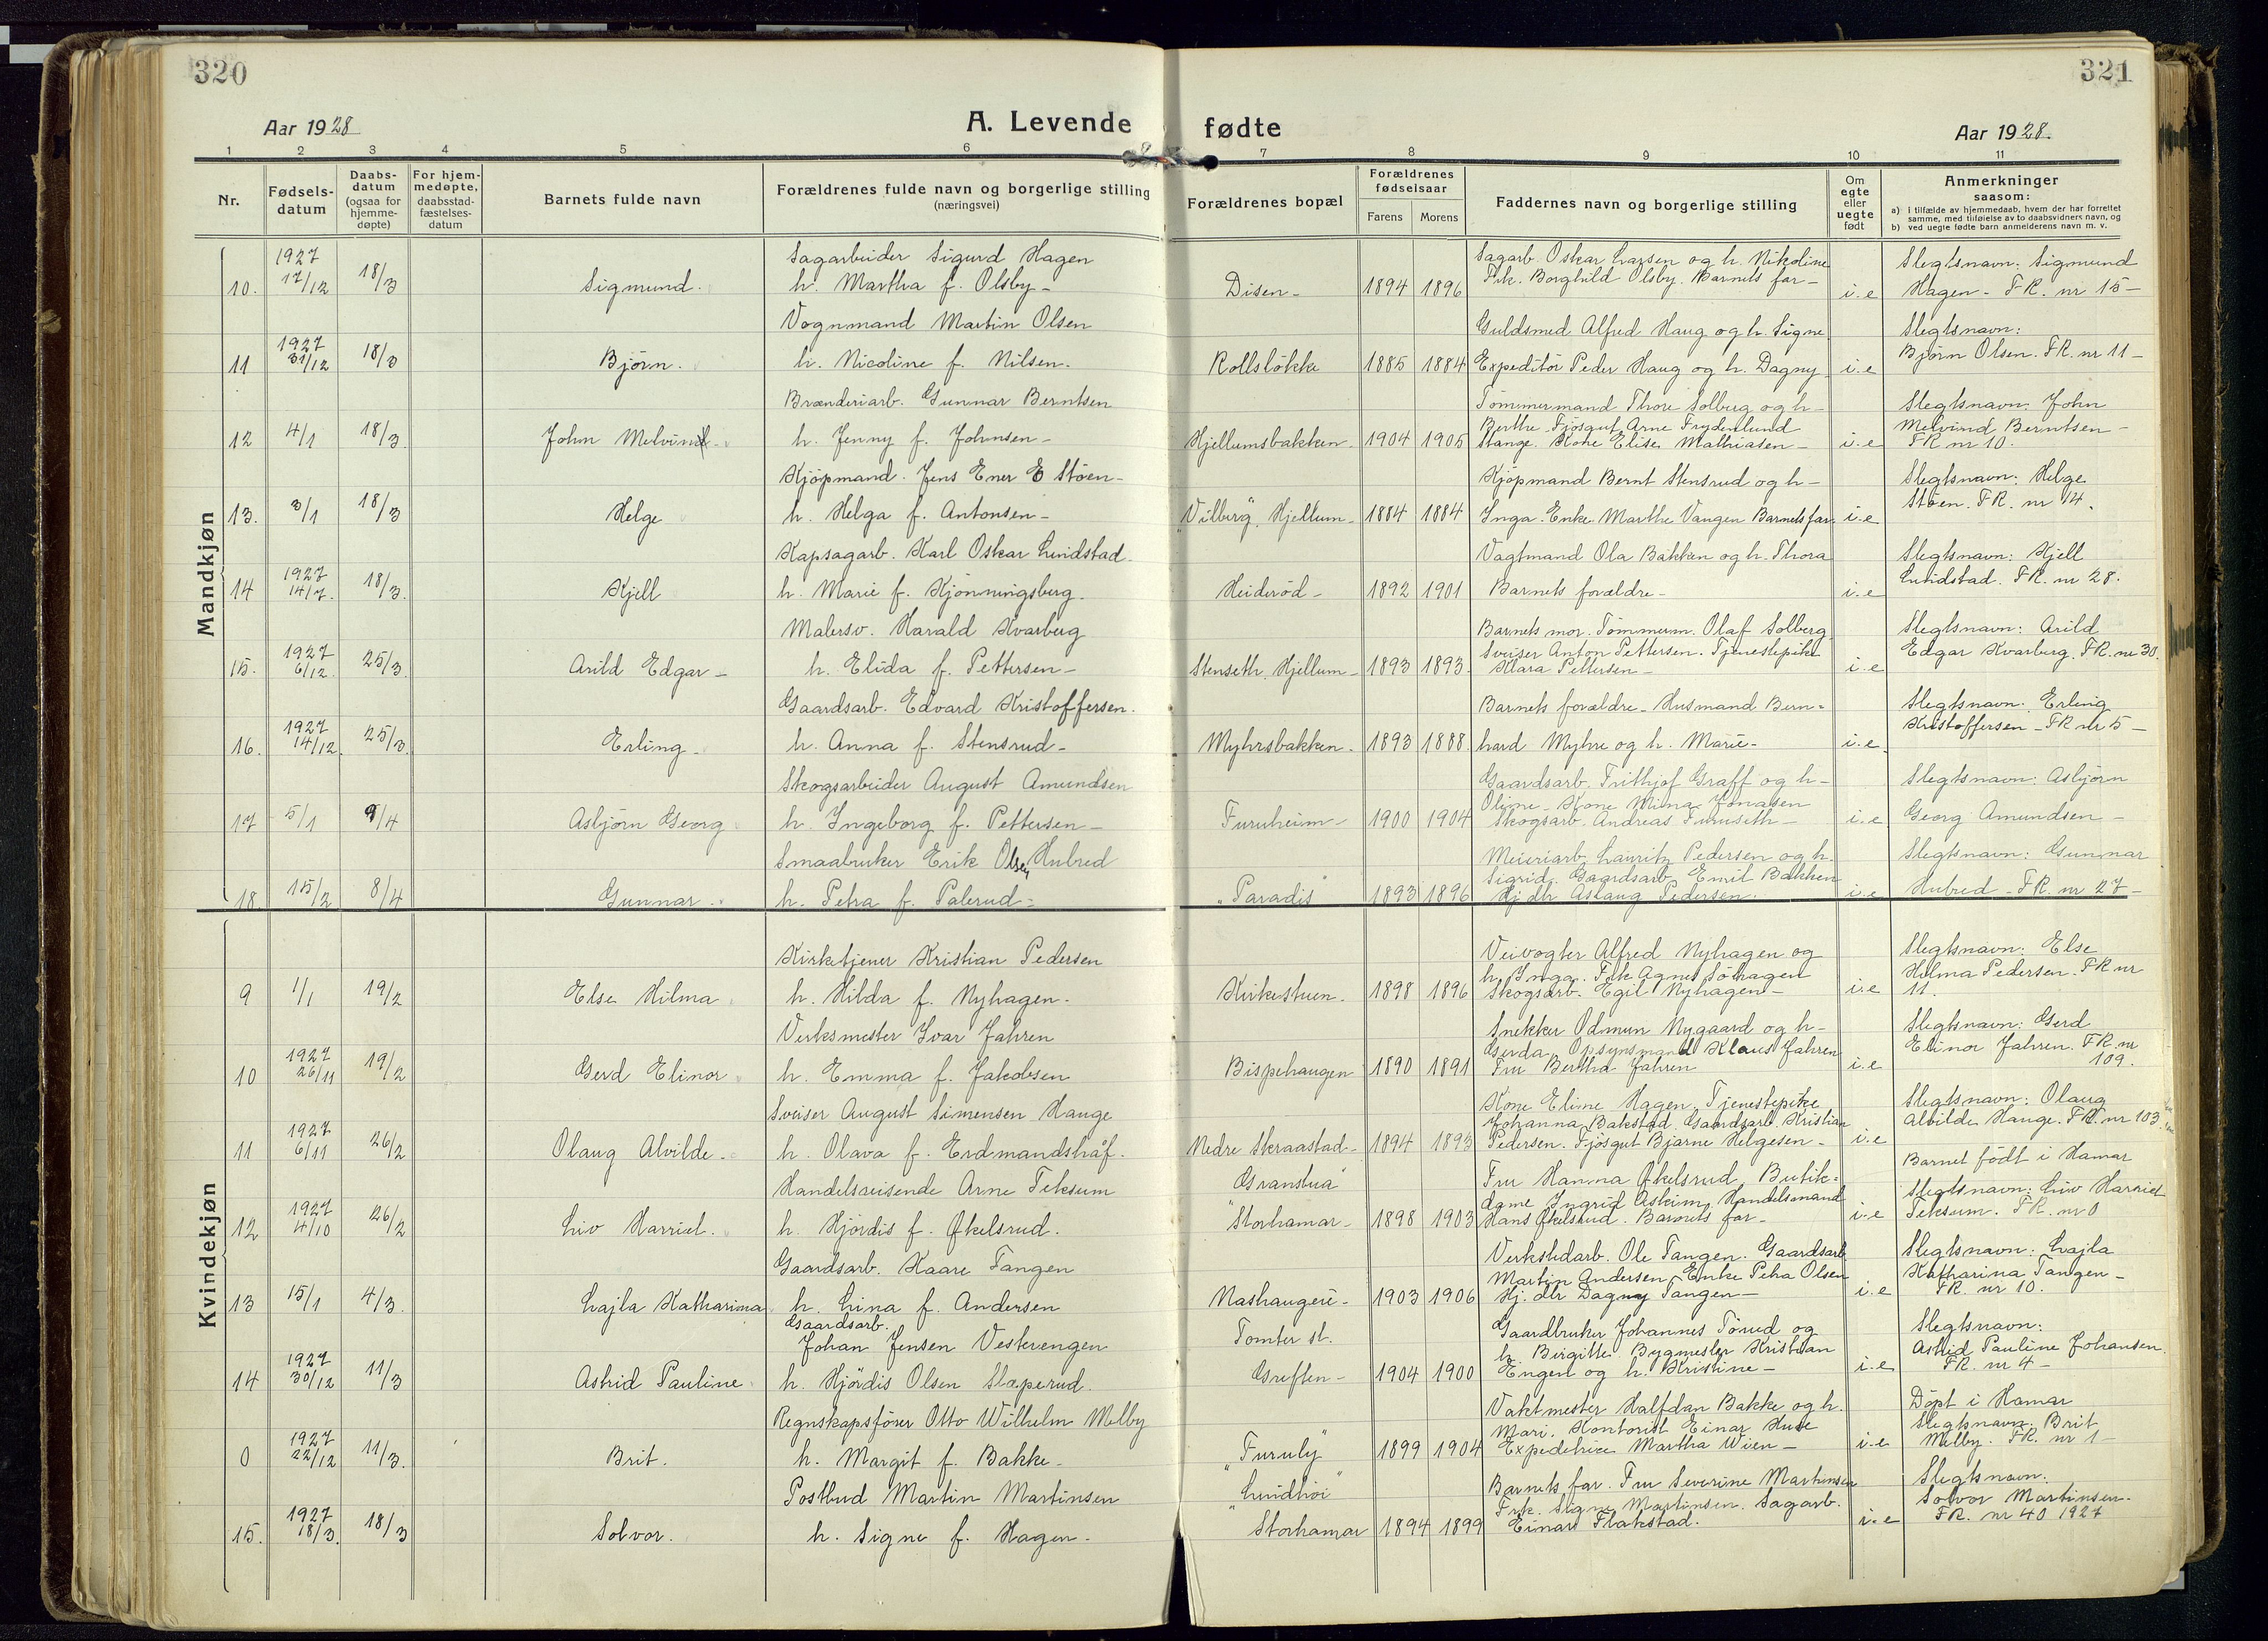 320
321
Aar 1928
A. Levende fødte
Aar 1928.
1 2 3 4 5 6 7 8 9 10 11
Nr.
Fødsels-
datum
Daabs-
datum
(ogsaa for
hjemme-
døpte)
For hjem-
medøpte,
daabsstad-
fæstelses-
datum
Barnets fulde navn
Forældrenes fulde navn og borgerlige stilling
(næringsvei)
Forældrenes bopæl
Forældrenes
fødselsaar
Farens Morens
Faddernes navn og borgerlige stilling
Om
egte
eller
uegte
født
Anmerkninger
saasom:
a) i tilfælde av hjemmedaab, hvem der har forrettet
samme, med tilføielse av to daabsvidners navn, og
b) ved uegte fødte barn anmelderens navn m. v.
Mandkjøn
10. 1927 17/12 18/3 Sigmund.
Sagarbeider Sigurd Hagen
h. Martha f. Olsby -
Disen - 1894 1896
Sagarb. Oskar Larsen og h. Nikoline
Frk. Borghild Olsby. Barnets far -
i.e
Slegtsnavn: Sigmund
Hagen - FR. nr 15 -
11 1927 31/12 18/3 Bjørn.
Vognmand Martin Olsen
h. Nicoline f. Nilsen.
Rollsløkke 1885 1884
Guldsmed Alfred Haug og h. Signe
Expeditør Peder Haug og h. Dagny
i.e
Slegtsnavn:
Bjørn Olsen. FR. nr 11 -
12 4/1 18/3. John Melvind.
Brænderiarb. Gunnar Berntsen
h. Jenny f. Johnsen -
Hjellumsbakken - 1904 1905
Tømmermand Thore Solberg og h -
Berthe. Fjøsgut Arne Frydenlund
Stange. Kone Elise Mathiasen -
i.e
Slegtsnavn: John
Melvind Berntsen -
FR nr 10.
13. 3/1 18/3 Helge
Kjøpmand. Jens Ener E Støen -
h. Helga f. Antonsen -
"Vilberg", Hjellum - 1884 1884
Kjøpmand Bernt Stensrud og h -
Inga. Enke Marthe Vangen Barnets far.
i.e
Slegtsnavn: Helge
Støen. FR. nr 14.
14 1927 14/7. 18/3. Kjell
Kapsagarb. Karl Oskar Lundstad.
h. Marie f. Kjønningsberg.
Heiderød - 1892 1901
Vagtmand Ola Bakken og h. Thora
Barnets forældre -
i.e
Slegtsnavn: Kjell
Lundstad. FR. nr 28.
15. 1927 6/12. 25/3 Arild Edgar -
Malersv. Harald Kvarberg
h. Elida f. Pettersen -
Stenseth, Hjellum - 1893 1893.
Barnets mor. Tømmerm. Olaf Solberg
Sveiser Anton Pettersen. Tjenestepike
Klara Pettersen -
i.e
Slegtsnavn: Arild
Edgar Kvarberg. FR. nr 30.
16. 1927 14/12. 25/3. Erling -
Gaardsarb. Edvard Kristoffersen.
h. Anna f. Stensrud -
Myhrsbakken - 1893 1888.
Barnets forældre - Husmand Bern-
hard Myhre og h. Marie -
i.e.
Slegtsnavn: Erling
Kristoffersen - FR nr 5 -
17 5/1 9/4 Asbjørn Georg
Skogsarbeider August Amundsen
h. Ingeborg f. Pettersen -
Furuheim - 1900 1904
Gaardsarb. Frithjof Graff og h -
Oline - Kone Mina Jonasen
Skogsarb. Andreas Furuseth -
i.e
Slegtsnavn: Asbjørn
Georg Amundsen -
18 15/2 8/4 Gunnar.
Smaabruker Erik Olsen Hubred
h. Petra f. Palerud -
"Paradis" 1893 1896
Meieriarb. Lauritz Pedersen og h.
Sigrid. Gaardsarb. Emil Bakken
Hj. dtr Aslaug Pedersen.
i.e
Slegtsnavn: Gunnar
Hubred - FR. nr 27 -
Kvindekjøn
9 1/1 19/2 Else Hilma
Kirketjener Kristian Pedersen
h. Hilda f. Nyhagen.
Kirkestuen. 1898 1896
Veivogter Alfred Nyhagen og
h. Inga. Frk Agnes Søhagen
Skogsarb. Egil Nyhagen -
i.e
Slegtsnavn: Else
Hilma Pedersen. FR nr
11.
10 1927 26/11 19/2 Gerd Elinor
Verksmester Ivar Jahren
h. Emma f. Jakobsen
Bispehaugen 1890 1891
Snekker Odmun Nygaard og h -
Gerda. Opsynsmand Klaus Jahren
Fru Bertha Jahren
i.e
Slegtsnavn: Gerd
Elinor Jahren. FR. nr
109.
11 1927 6/11 26/2 Olaug Alvilde.
Sveiser August Simensen Hauge
h. Olava f. Erdmandshåf.
Nedre Skraastad - 1894 1893
Kone Eline Hagen. Tjenestepike
Johanna Bakstad. Gaardsarb. Kristian
Pedersen. Fjøsgut Bjarne Helgesen -
i.e
Slegtsnavn: Olaug
Albilde Hauge. FR. nr 103
12 1927 4/10 26/2 Liv Harriet.
Handelsreisende Arne Teksum
h. Hjørdis f. Økelsrud.
"Granstua"
"Storhamar - 1898 1903
Fru Hanna Økelsrud, Butik-
dame Ingrid Askim, Handelsmand
Hans Økelsrud. Barnets far -
i.e
Barnet født i Hamar
Slegtsnavn: Liv Harriet
Teksum. FR. nr 0
13 15/1 4/3. Lajla Katharina
Gaardsarb. Kaare Tangen
h. Lina f. Andersen
Nashaugeie - 1903 1906
Verkstedarb. Ole Tangen. Gaardsarb
Martin Andersen, Enke Petra Olsen
Hj. dtr Dagny Tangen -
i.e
Slegtsnavn: Lajla
Katharina Tangen -
FR. nr 10.
14 1927 30/12 11/3 Astrid Pauline
Gaardsarb.
Johan Jensen Vesterengen
h. Hjørdis Olsen Slæperud.
Tomter st.
Greften - 1904 1900
Gaardbruker Johannes Tørud og
h. Birgitte. Bygmester Kristian
Engen og h. Kristine -
i.e
Slegtsnavn:
Astrid Pauline Johansen.
FR. nr 4 -
0 1927 22/12 11/3. Brit.
Regnskapsfører Otto Wilhelm Melby
h. Margit f. Bakke.
"Furuly" 1899 1904
Vaktmester Halfdan Bakke og h.
Mari. Kontorist Einar Huse
Expeditrice Martha Wien -
i.e
Døpt i Hamar
Slegtsnavn: Brit
Melby. FR. nr 1 -
15. 1927 18/3. 18/3 Solvor.
Postbud Martin Martinsen
h. Signe f. Hagen -
"Lundhøi"
Storhamar 1894 1899
Barnets far. Fru Severine Martinsen
Frk. Signe Martinsen. Sagarb.
Einar Flakstad.
i.e
Slegtsnavn:
Solvor Martinsen.
FR. nr 40 1927